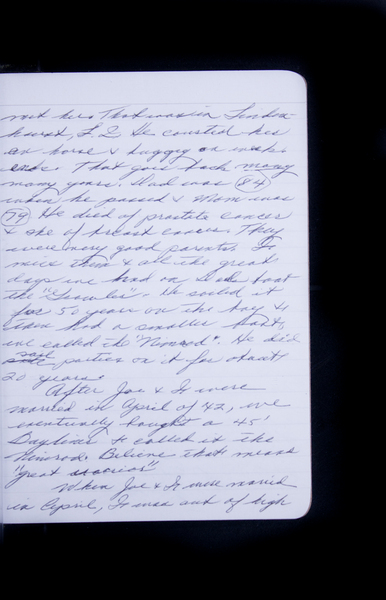 met her. That was in Linden-
hurst, L I. He courted her
on horse & buggy on week
ends. That goes back many
many years. Dad was 84
when he passed & Mom was
79 He died of prostate cancer
& she of breast cancer. They
were very good parents. I
miss them & all the great
days we had on the boat
the "Growler". He sailed it
for 50 years on the bay &
then had a smaller boat,
we called the "Nimrod". He did
sail parties on it for about
20 years.
After Joe & I were
married in April of 42, we
eventually bought a 45'
Daylover & called it the
Nimrod. Believe that means
"great warrior"
When Joe & I were married
in April, I was out of high